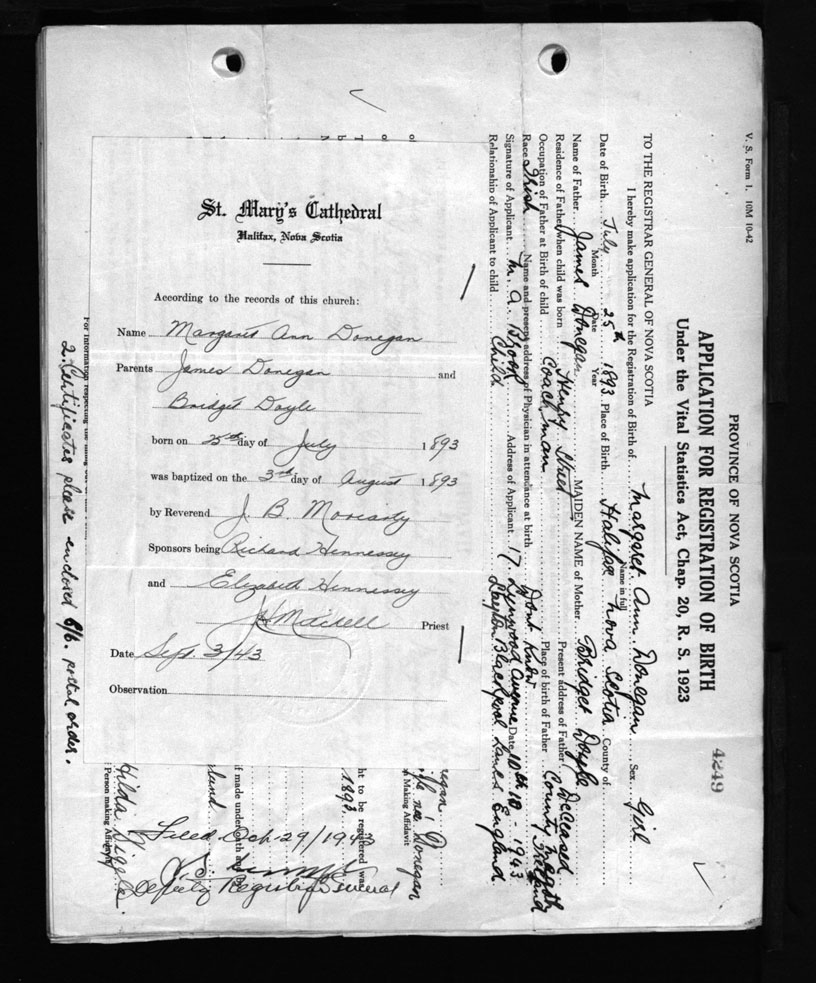 V. S. Form 1. 10M 10-42
PROVINCE OF NOVA SCOTIA
4249
APPLICATION FOR REGISTRATION OF BIRTH
Under the Vital Statistics Act, Chap. 20, R. S. 1923
TO THE REGISTRAR GENERAL OF NOVA SCOTIA
I hereby make application for the Registration of Birth of Margaret Ann Donegan Sex Girl
Name in full
Date of Birth July 25th 1893 Place of Birth Halifax Nova Scotia County of
Month Date Year
Name of Father James Donegan MAIDEN NAME of Mother Bridget Doyle
Residence of Father when child was born Henry Street Present address of Father Deceased
Occupation of Father at Birth of child Coachman Place of birth of Father County Meath Ireland
Race Irish Name and present address of Physician in attendance at birth Dont Know
Signature of Applicant M. A. Address of Applicant 17 Avenue Date 10th 1943
Layton Blackpool Lancs England
Relationship of Applicant to child Child
St. Mary's Cathedral
Halifax, Nova Scotia
According to the records of this church:
Name Margaret Ann Donegan
Parents James Donegan and
Bridget Doyle
born on 25th day of July 1893
was baptized on the 3rd day of August 1893
by Reverend J. B. Moriarty
Sponsors being Richard Hennessey
and Elizabeth Hennessey
Priest
Date Sept. 3/43
Observation
egan
née Donegan
n Making Affidavit
ht to be registered was
1893
if made under oath and
land
Hilda
Person making Affidavit
Filed Oct 29/1943
Deputy Registrar General
For information respecting the
2. Certificates please enclosed 6/6. postal order.